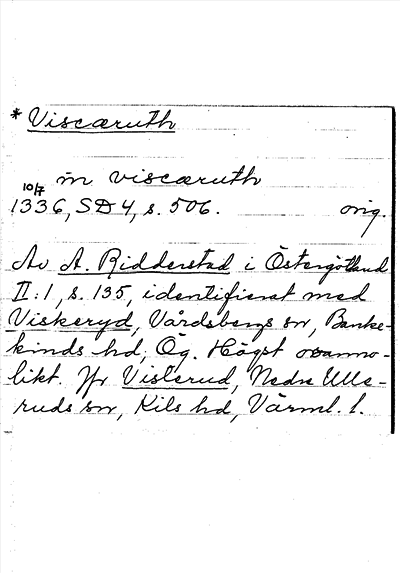 * Viscæruth
in viscæruth
10/7
1336, SD 4, s. 506. orig.
Av A. Ridderstad i Östergötland
II:1, s. 135, identifierat med
Viskeryd, Vårdsbergs sn, Banke-
kinds hd, Ög. Högst osanno-
likt. Jfr Vislerud, Nedre Ulle-
ruds sn, Kils hd, Värml. l.